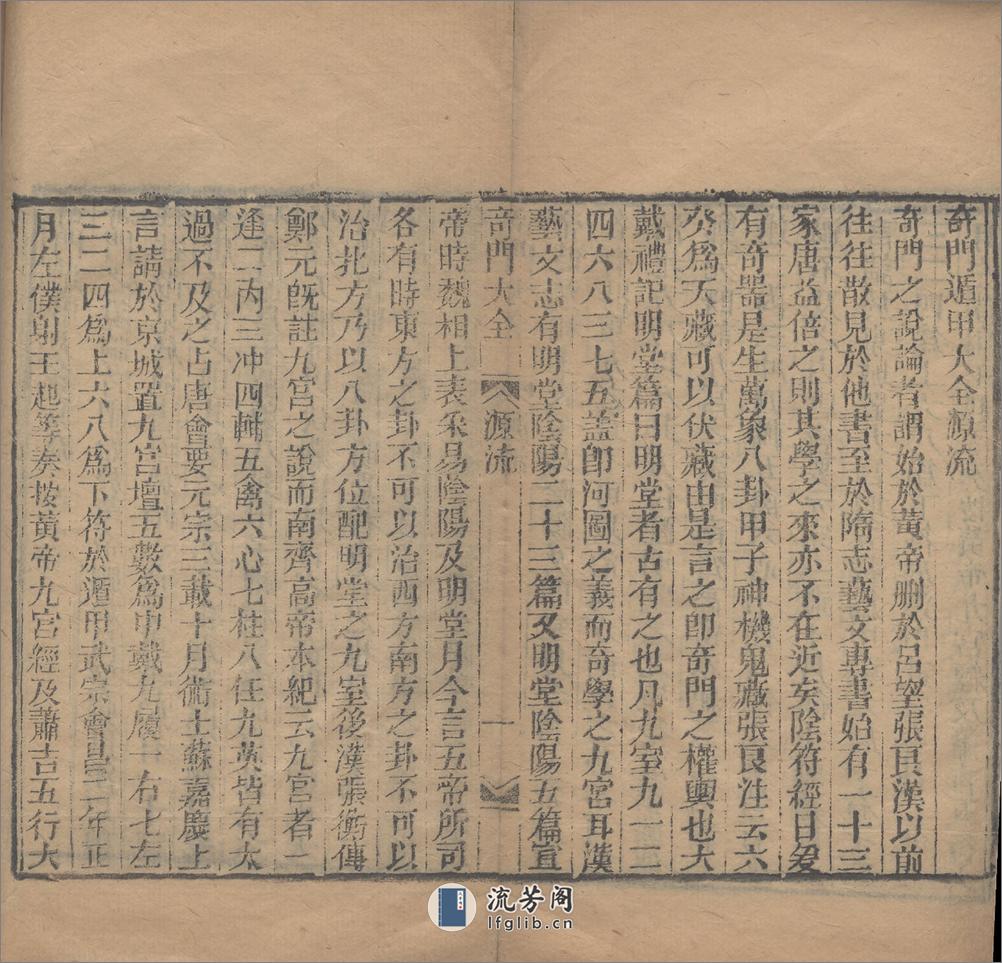 奇門遁甲大全源流
奇門之說論者謂始於黃帝刪於呂望張良漢以前
往往散見於他書至於隋志藝文專書始有一十三
家唐益倍之則其學之來亦不在近矣陰符經曰爰
有奇器是生萬象八卦甲子神機鬼藏張良注云六
癸爲天藏可以伏藏由是言之即奇門之權輿也大
戴禮記明堂篇曰明堂者古有之也凡九室九一二
四六八三七五蓋即河圖之義而奇學之九宮耳漢
藝文志有明堂陰陽二十三篇又明堂陰陽五篇宣
奇門大全 源流 一
帝時魏相上表采易陰陽及明堂月令言五帝所司
各有時東方之卦不可以治西方南方之卦不可以
治北方乃以八卦方位配明堂之九室後漢張衡傳
鄭元旣註九宮之說而南齊高帝本紀云九宮者一
逢二內三冲四輔五禽六心七柱八任九英皆有太
過不及之占唐會要元宗三載十月術士蘇嘉慶上
言請於京城置九宮壇五數爲中戴九履一右七左
三二四爲上六八爲下符於遁甲武宗會昌二年正
月左僕射王起等奏按黃帝九宮經及蕭吉五行大
流芳阁
lfglib.cn